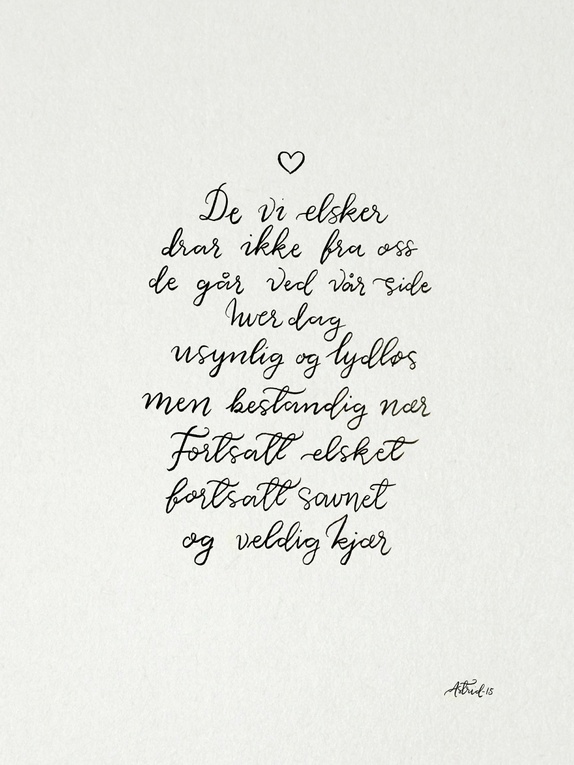 De vi elsker
drar ikke fra oss
de går ved vår side
hver dag
usynlig og lydløs
men bestandig nær
Fortsatt elsket
fortsatt savnet
og veldig kjær
Astrid-15